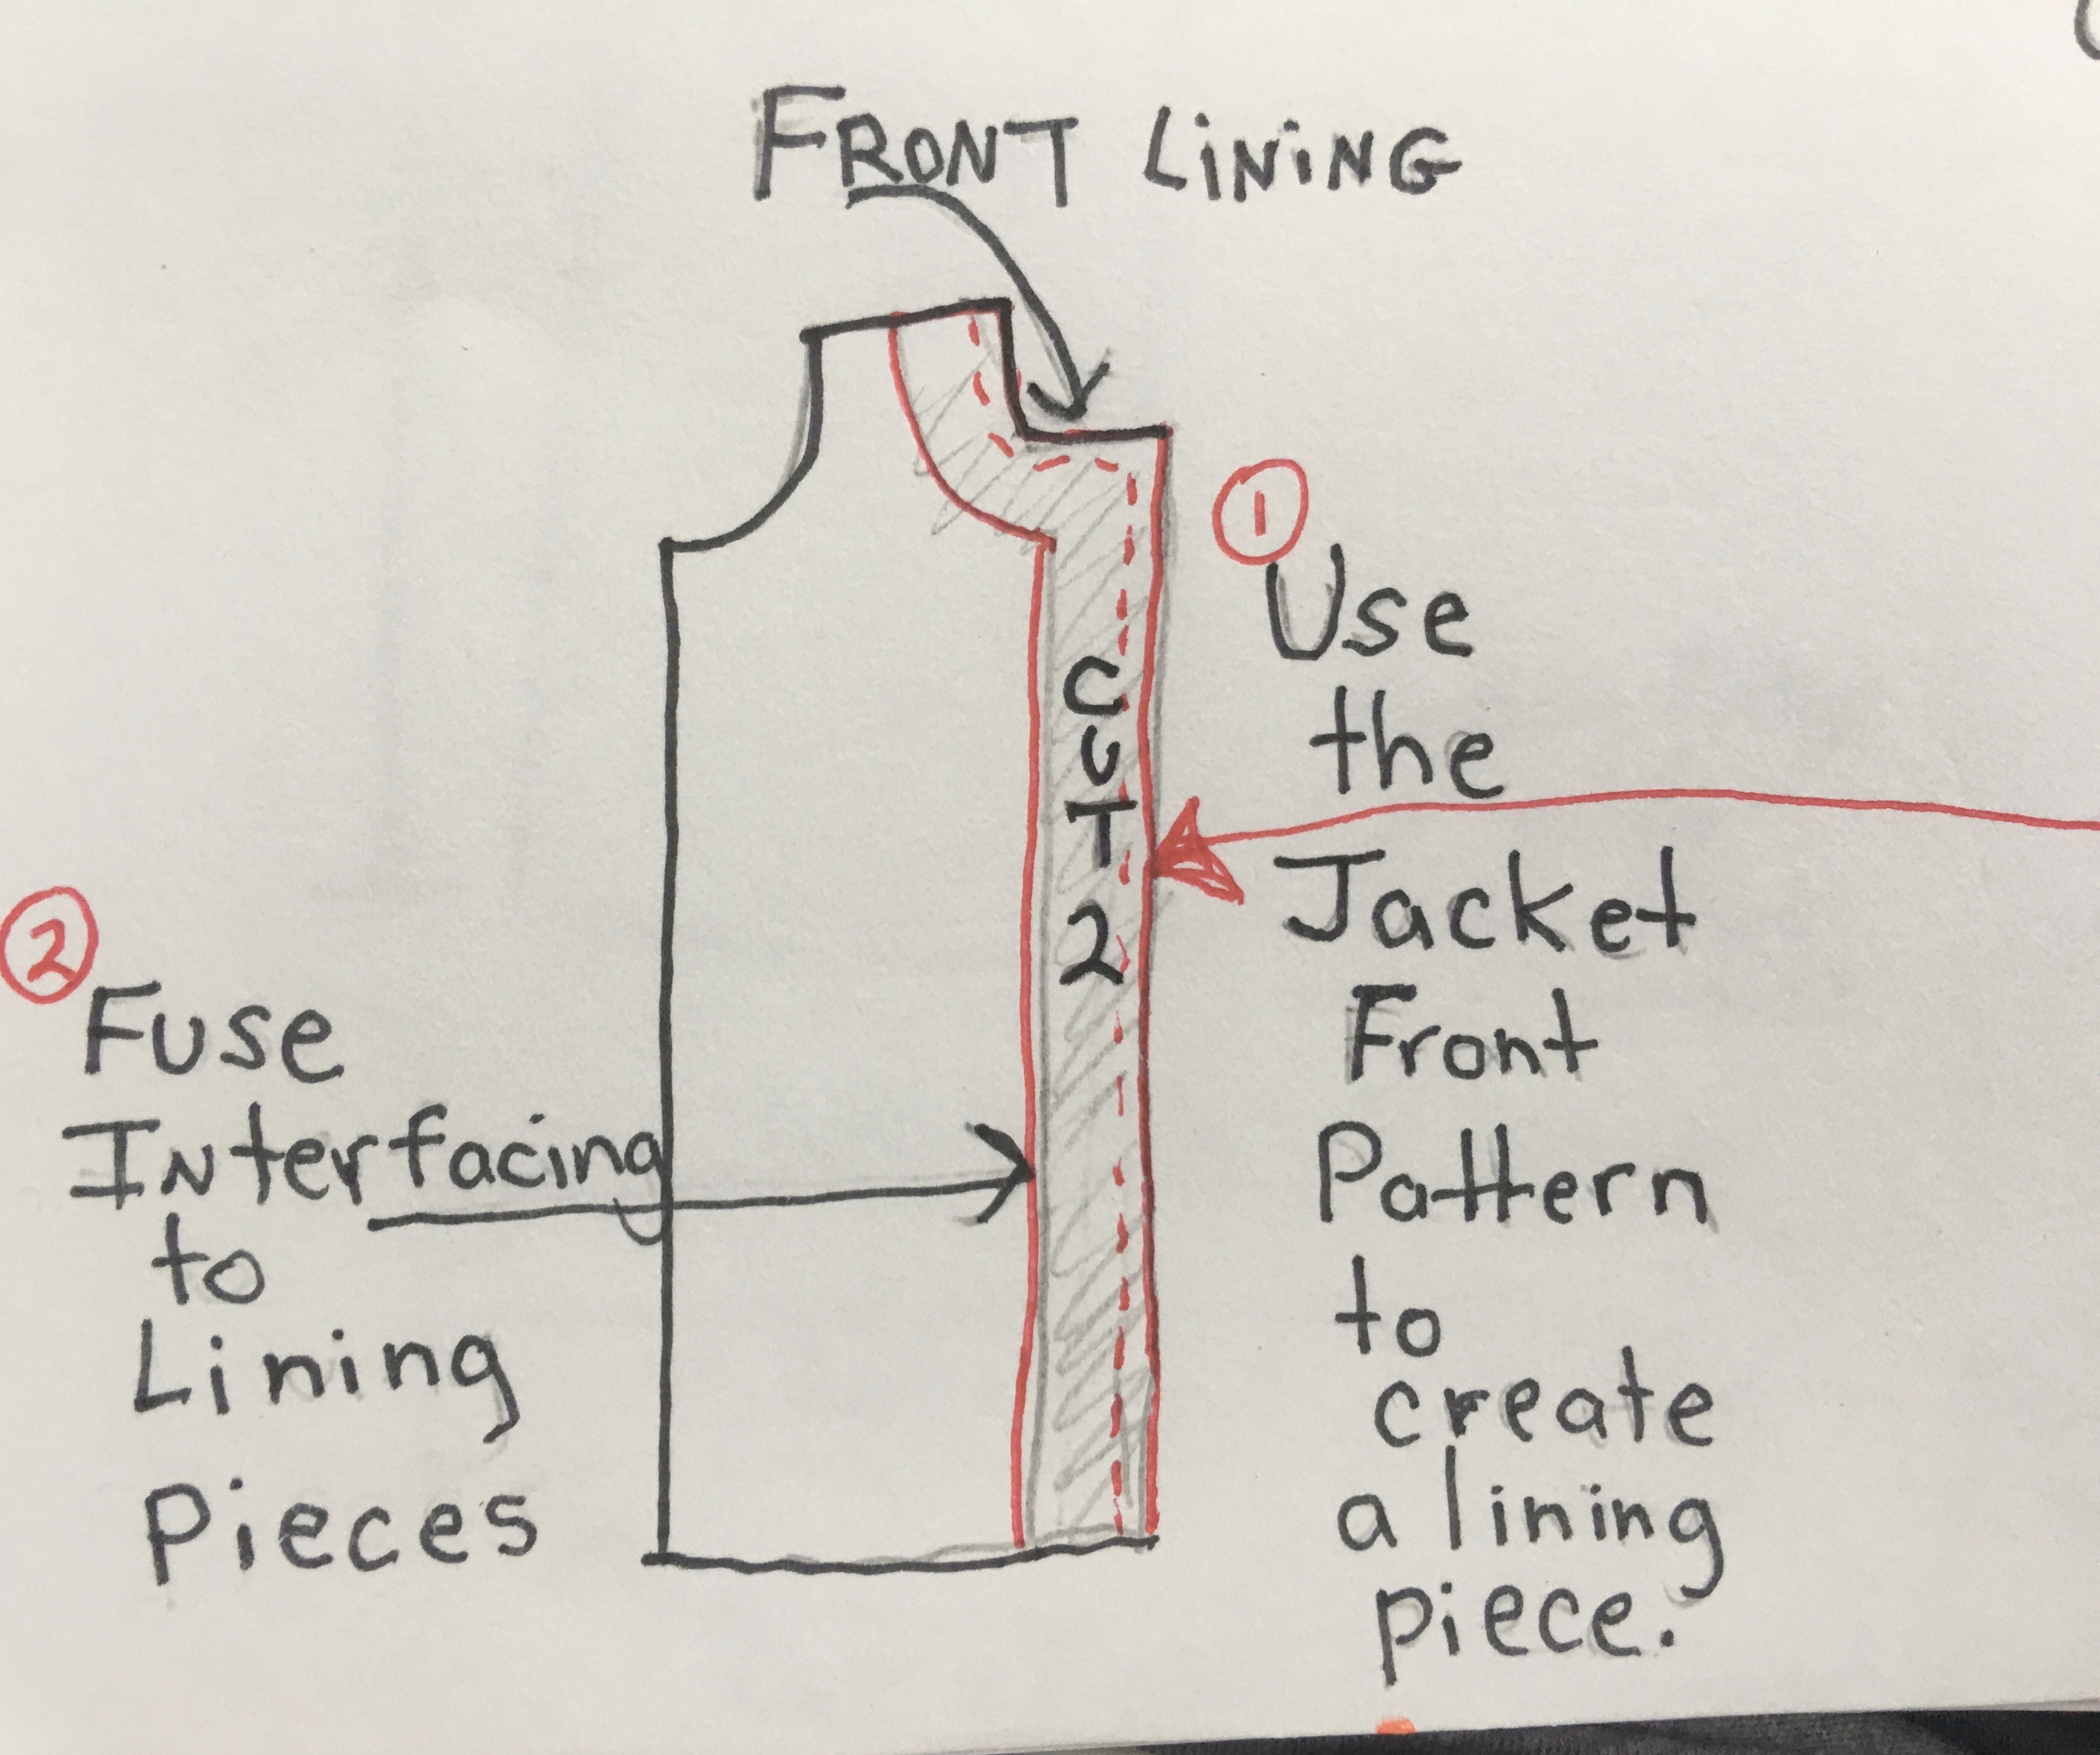 FRONT LiNiNG
①
Use
the
Jacket
Front
Pattern
to
create
a lining
piece.
CUT 2
②
Fuse
INterfacing
to
Lining
Pieces